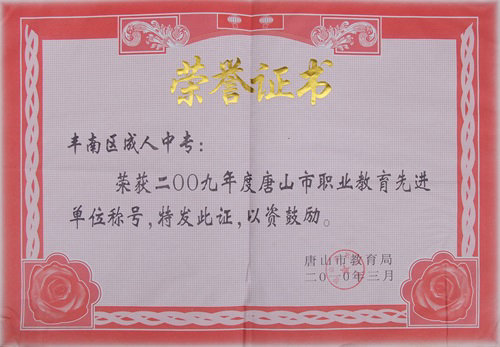 荣誉证书
丰南区成人中专：
荣获二〇〇九年度唐山市职业教育先进
单位称号，特发此证，以资鼓励。
唐山市教育局
二〇一〇年三月